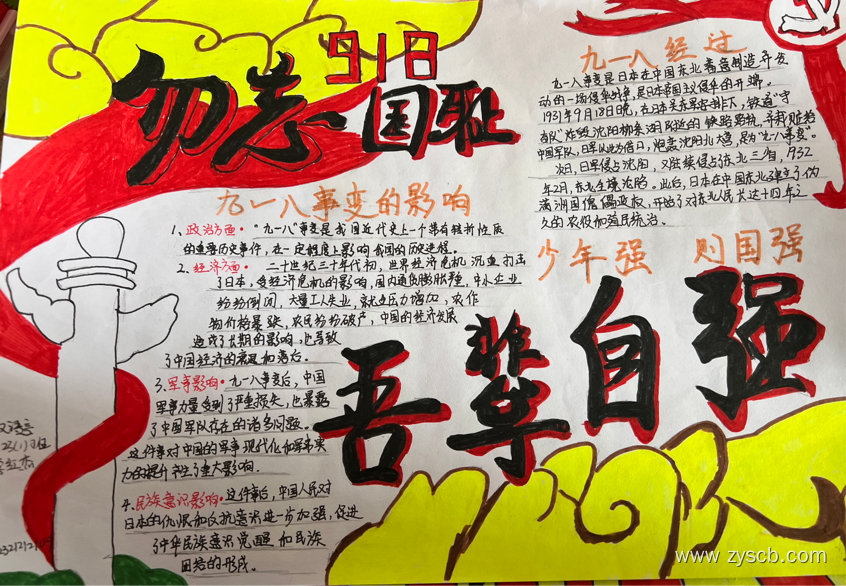 勿忘国耻
918
九一八经过
九一八事变是日本在中国东北蓄意制造并发
动的一场侵华战争,是日本帝国主义侵华的开端。
1931年9月18日晚,在日本关东军安排下,铁道"守
备队"炸毁沈阳柳条湖附近的铁路路轨,并栽赃给
中国军队,日军以此为借口,炮轰沈阳北大营,是为"九一八事变"。
次日,日军侵占沈阳,又陆续侵占东北三省,1932
年2月,东北全境沦陷。此后,日本在中国东北建立了伪
满洲国傀儡政权,开始了对东北人民长达十四年之
久的奴役和殖民统治。
九一八事变的影响
1、政治方面·"九一八"事变是我国近代史上一个带有转折性质
的重要历史事件,在一定程度上影响我国的历史进程。
2、经济方面· 二十世纪三十年代初,世界经济危机沉重打击
了日本,受经济危机的影响,国内通货膨胀严重,中小企业
纷纷倒闭,大量工人失业,就业压力增加,农作
物价格暴跌,农民纷纷破产,中国的经济发展
造成了长期的影响,也导致
了中国经济的衰退和落后。
3、军事影响·九一八事变后,中国
军事力量受到了严重损失,也暴露
了中国军队存在的诸多问题。
这件事对中国的军事现代化和军事实
力的提升产生了重大影响.
4、民族意识影响·这件事后,中国人民对
日本的仇恨和反抗意识进一步加强,促进
了中华民族意识觉醒和民族
团结的形成。
少年强 则国强
吾辈自强
www.zyscb.com